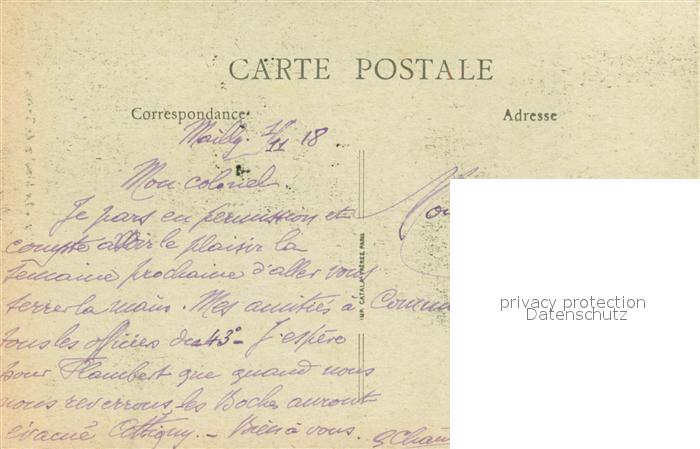 CARTE POSTALE
Correspondance
Adresse
Mailly. 7/11 18
Mon colonel
Je pars en permission et
compte avoir le plaisir la
semaine prochaine d'aller vous
serrer la main. Mes amitiés à
tous les officiers du 43e - J'espère
pour Flambert que quand nous
nous reverrons les Boches auront
évacué Attigny. - Bien à vous.
IMP. CATALA FRÈRES, PARIS
privacy protection
Datenschutz